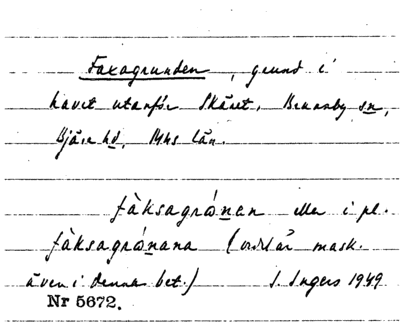 Faxagrunden, grund i
havet utanför Skäret, Brunnby sn,
Bjäre hd, M län.
fàksagrónen eller i pl.
fàksagrónana (ordet är mask.
även i denna bet.) I. Ingers 1949
Nr 5672.